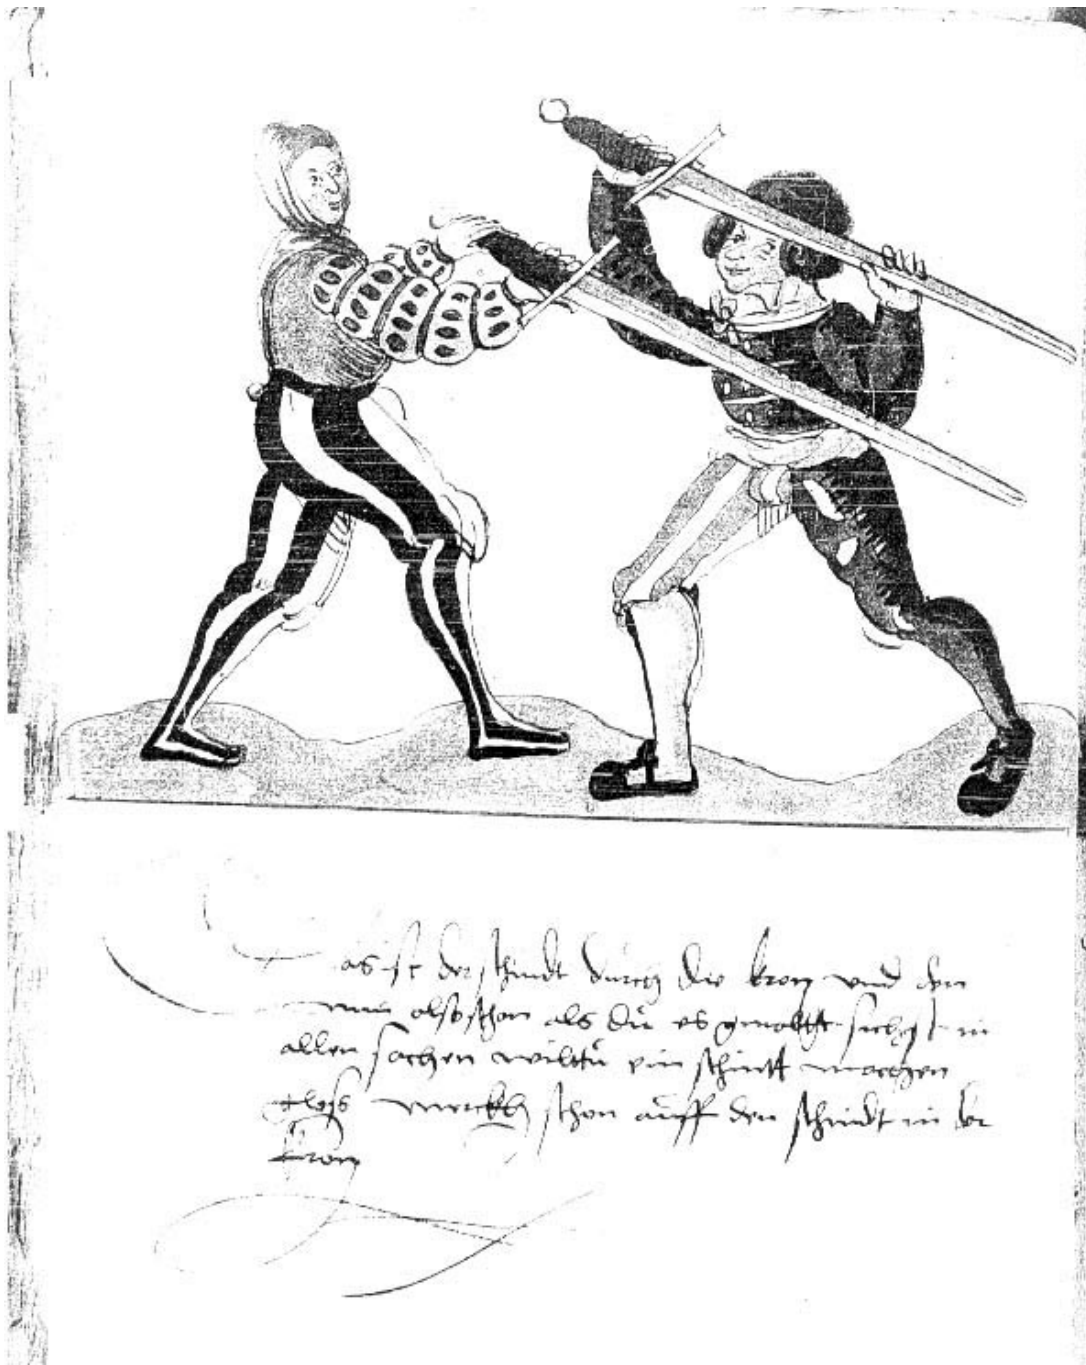 Das ist der schnidt durch die kron vnnd den
min also schon als dŭ es gmoltt sichst in
allen sachen wilttŭ ein schnitt machen
merckh schon aŭff den schnidt in der
kron